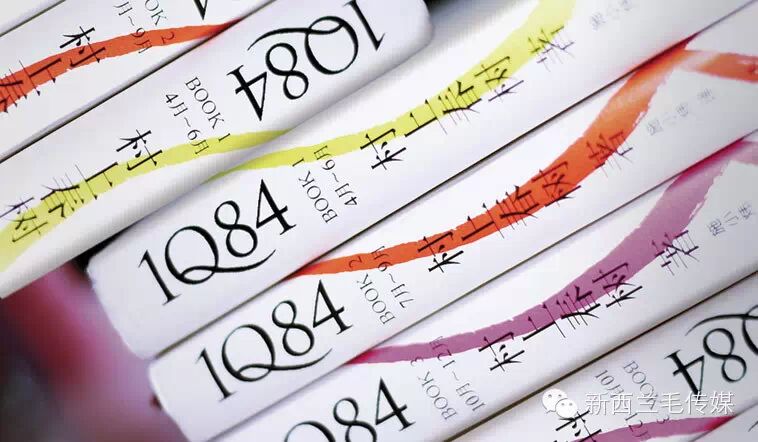 BOOK 2
7月～9月
村上春
1Q84
BOOK 1
4月～6月
村上春树
1Q84
BOOK 1
4月～6月
村上春树 著
1Q84
BOOK 2
7月～9月
村上春树 著
施小炜 译
1Q84
BOOK 3
10月～12月
村上春树 著
施小炜
1Q84
BOOK 3
10月
新西兰毛传媒